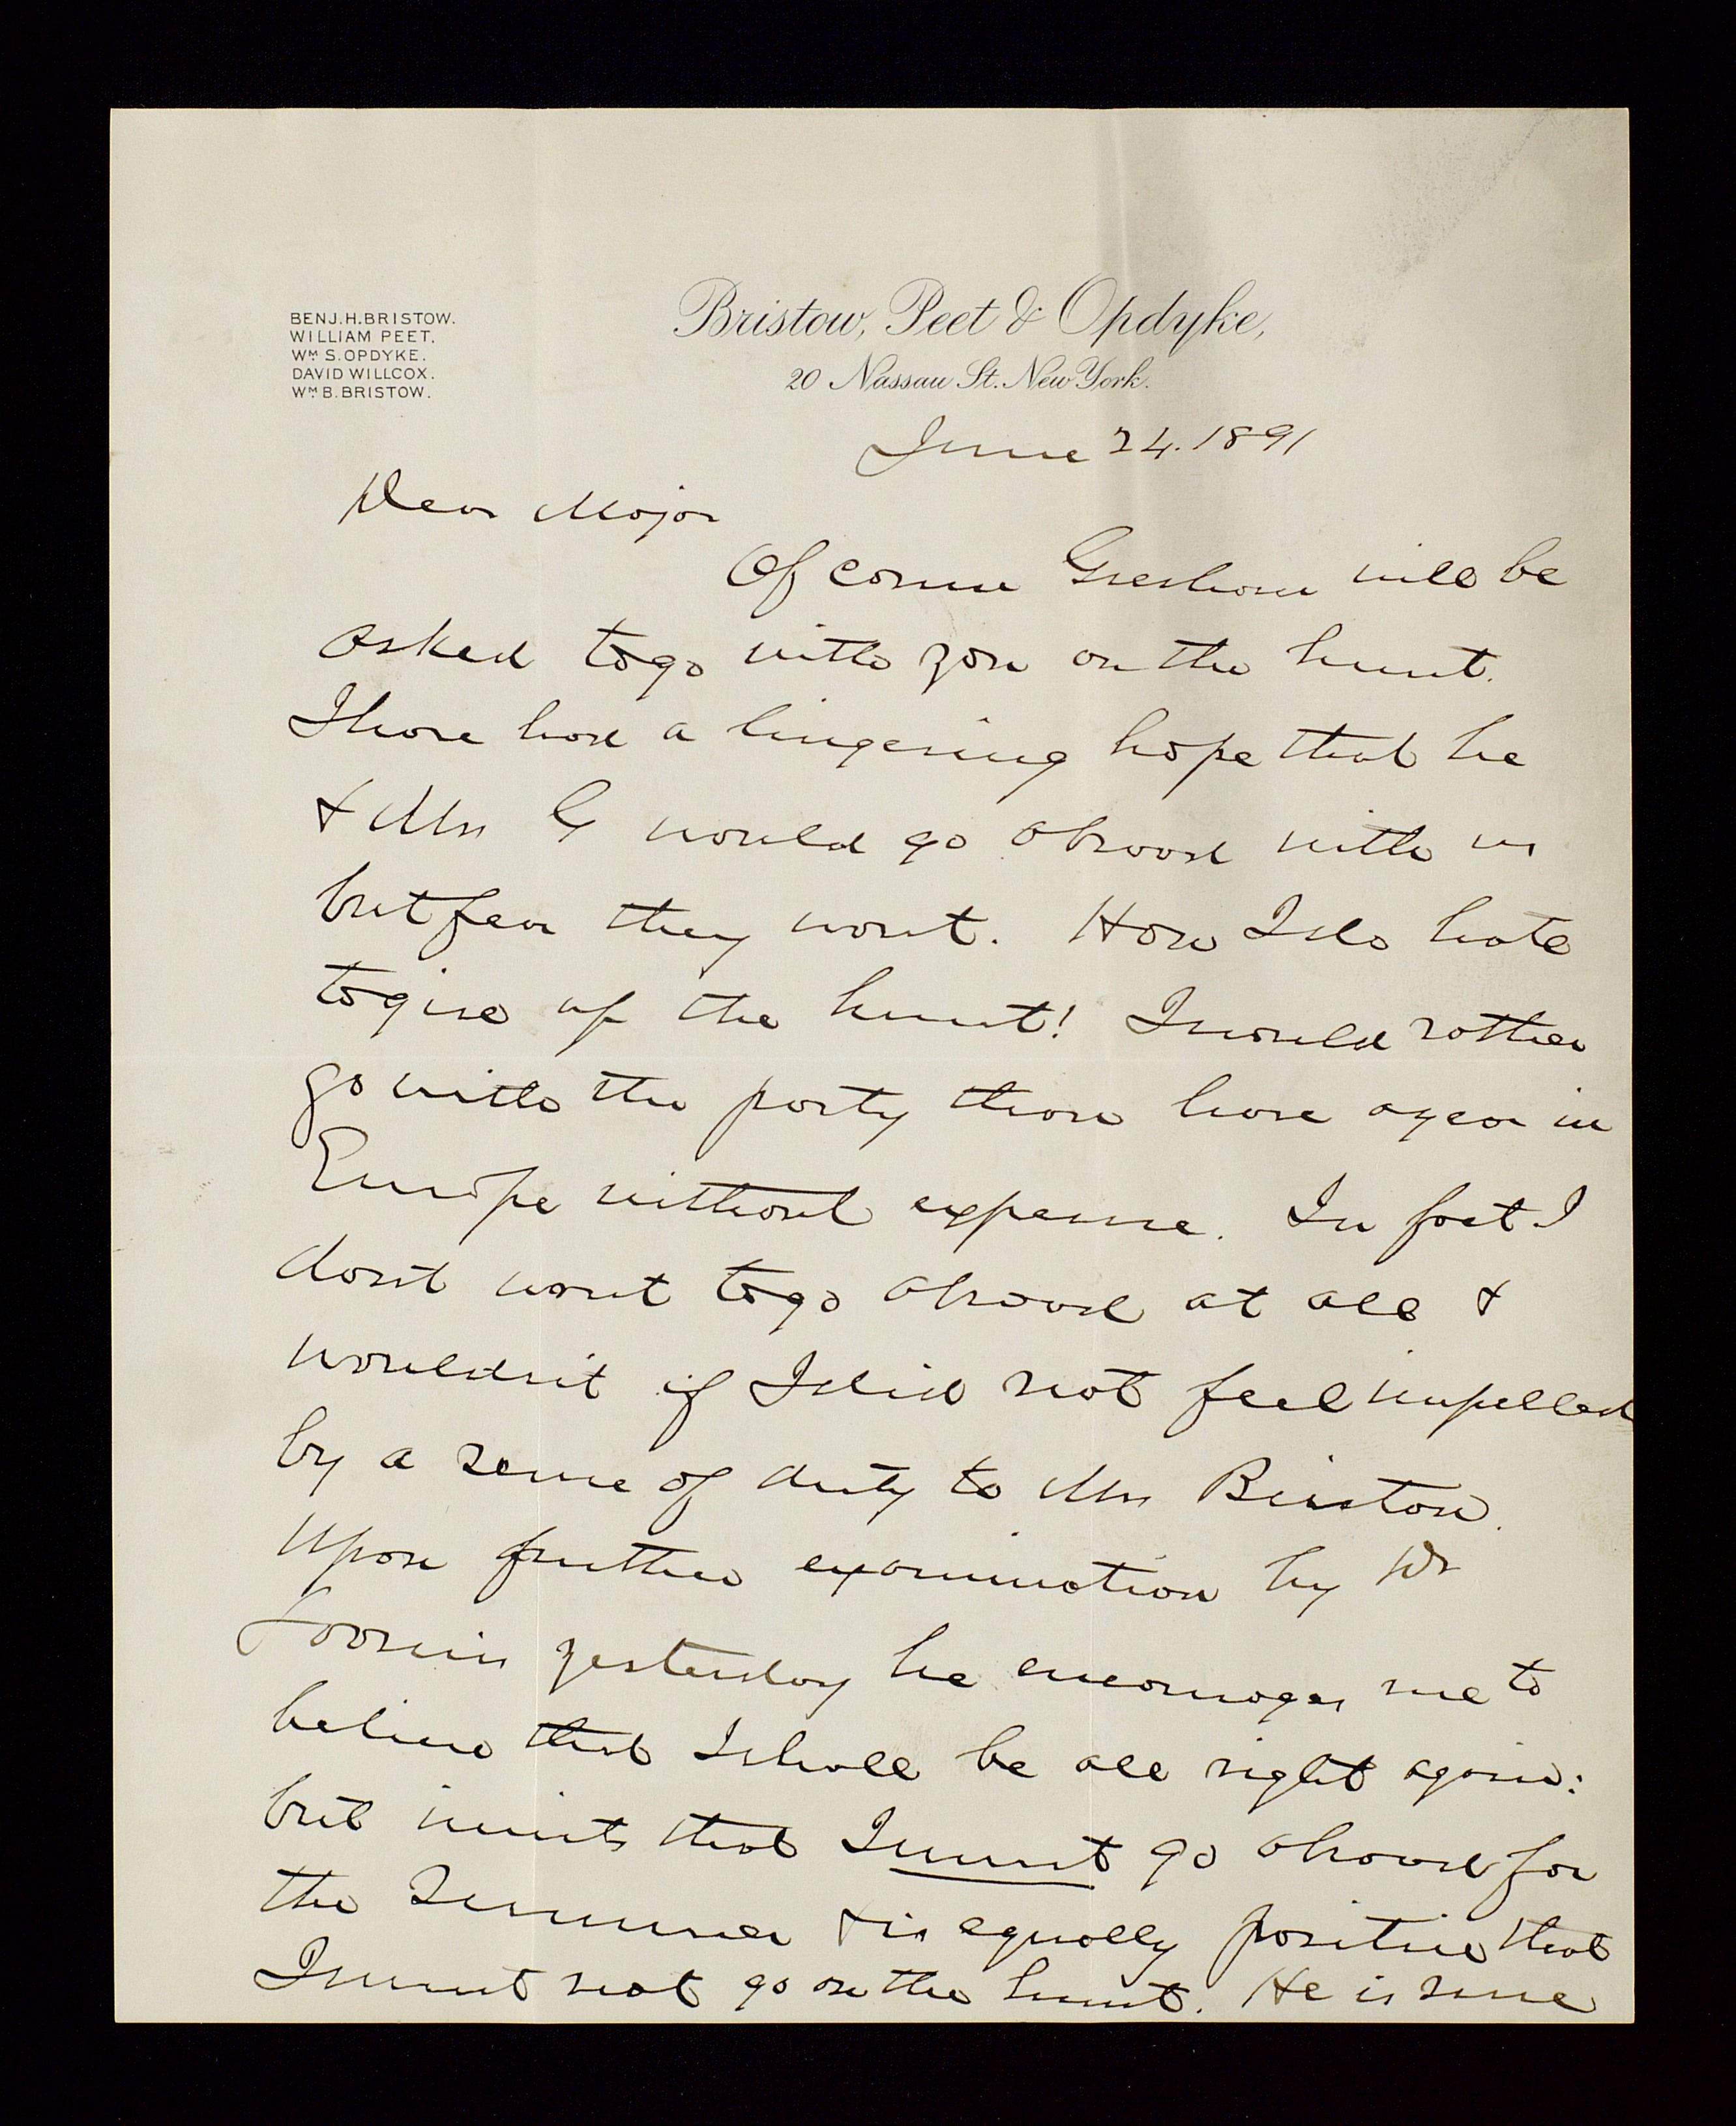 BENJ. H. BRISTOW.
WILLIAM PEET.
Wm S. OPDYKE.
DAVID WILLCOX.
Wm B. BRISTOW.
Bristow, Peet & Opdyke,
20 Nassau St. New York.
June 24. 1891
Dear Major
Of course Gresham will be
asked to go with you on the hunt.
I have had a lingering hope that he
& Mrs G would go abroad with us
but fear they wont. How I do hate
to give up the hunt! I would rather
go with the party than have a year in
Europe without expense. In fact I
don't want to go abroad at all &
wouldn't if I did not feel impelled
by a sense of duty to Mrs Bristow.
Upon further examination by Dr
Loomis yesterday he encourages me to
believe that I shall be all right again:
but insists that I must go abroad for
the Summer & is equally positive that
I must not go on the hunt. He is sure